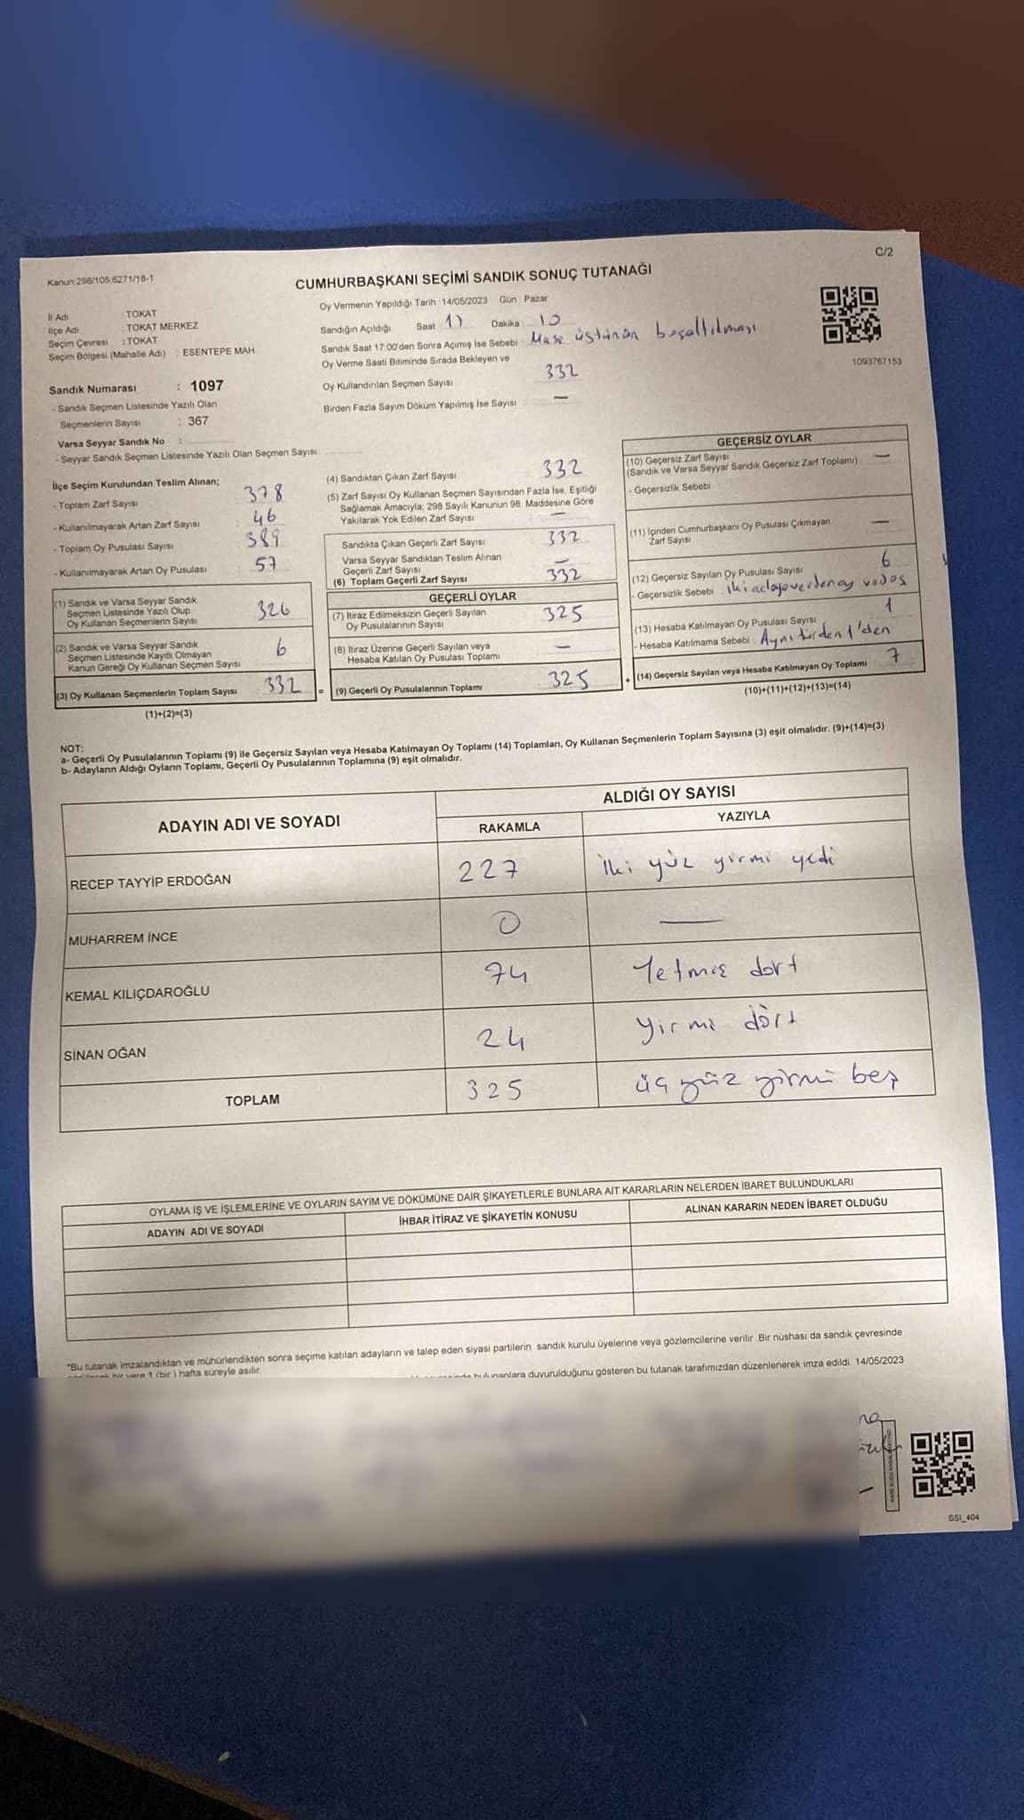 C/2
Kanun:298/105 6271/16-1
CUMHURBAŞKANI SEÇİMİ SANDIK SONUÇ TUTANAĞI
İl Adı : TOKAT
İlçe Adı : TOKAT MERKEZ
Seçim Çevresi : TOKAT
Seçim Bölgesi (Mahalle Adı) : ESENTEPE MAH.
Sandık Numarası : 1097
- Sandık Seçmen Listesinde Yazılı Olan
Seçmenlerin Sayısı : 367
Varsa Seyyar Sandık No :
- Seyyar Sandık Seçmen Listesinde Yazılı Olan Seçmen Sayısı
Oy Vermenin Yapıldığı Tarih : 14/05/2023 Gün : Pazar
Sandığın Açıldığı Saat 17 Dakika : 10
Sandık Saat 17:00'den Sonra Açılmış İse Sebebi : Masa üstünün boşaltılması
Oy Verme Saati Bitiminde Sırada Bekleyen ve
Oy Kullandırılan Seçmen Sayısı 332
Birden Fazla Sayım Döküm Yapılmış İse Sayısı —
1093767153
İlçe Seçim Kurulundan Teslim Alınan;
- Toplam Zarf Sayısı 378
- Kullanılmayarak Artan Zarf Sayısı 46
- Toplam Oy Pusulası Sayısı 389
- Kullanılmayarak Artan Oy Pusulası 57
(1) Sandık ve Varsa Seyyar Sandık
Seçmen Listesinde Yazılı Olup
Oy Kullanan Seçmenlerin Sayısı 326
(2) Sandık ve Varsa Seyyar Sandık
Seçmen Listesinde Kayıtlı Olmayan
Kanun Gereği Oy Kullanan Seçmen Sayısı 6
(3) Oy Kullanan Seçmenlerin Toplam Sayısı 332 =
(1)+(2)=(3)
(4) Sandıktan Çıkan Zarf Sayısı 332
(5) Zarf Sayısı Oy Kullanan Seçmen Sayısından Fazla İse, Eşitliği
Sağlamak Amacıyla; 298 Sayılı Kanunun 98. Maddesine Göre
Yakılarak Yok Edilen Zarf Sayısı —
Sandıkta Çıkan Geçerli Zarf Sayısı 332
Varsa Seyyar Sandıktan Teslim Alınan
Geçerli Zarf Sayısı —
(6) Toplam Geçerli Zarf Sayısı 332
GEÇERLİ OYLAR
(7) İtiraz Edilmeksizin Geçerli Sayılan
Oy Pusulalarının Sayısı 325
(8) İtiraz Üzerine Geçerli Sayılan veya
Hesaba Katılan Oy Pusulası Toplamı —
(9) Geçerli Oy Pusulalarının Toplamı 325 +
GEÇERSİZ OYLAR
(10) Geçersiz Zarf Sayısı —
(Sandık ve Varsa Seyyar Sandık Geçersiz Zarf Toplamı)
- Geçersizlik Sebebi
(11) İçinden Cumhurbaşkanı Oy Pusulası Çıkmayan
Zarf Sayısı —
(12) Geçersiz Sayılan Oy Pusulası Sayısı 6
- Geçersizlik Sebebi : İki
(13) Hesaba Katılmayan Oy Pusulası Sayısı 1
- Hesaba Katılmama Sebebi : Aynı türden 1'den
(14) Geçersiz Sayılan veya Hesaba Katılmayan Oy Toplamı 7
(10)+(11)+(12)+(13)=(14)
NOT:
a- Geçerli Oy Pusulalarının Toplamı (9) ile Geçersiz Sayılan veya Hesaba Katılmayan Oy Toplamı (14) Toplamları, Oy Kullanan Seçmenlerin Toplam Sayısına (3) eşit olmalıdır. (9)+(14)=(3)
b- Adayların Aldığı Oyların Toplamı, Geçerli Oy Pusulalarının Toplamına (9) eşit olmalıdır.
ADAYIN ADI VE SOYADI
ALDIĞI OY SAYISI
RAKAMLA YAZIYLA
RECEP TAYYİP ERDOĞAN 227 iki yüz yirmi yedi
MUHARREM İNCE 0 —
KEMAL KILIÇDAROĞLU 74 Yetmiş dört
SİNAN OĞAN 24 yirmi dört
TOPLAM 325 üç yüz yirmi beş
OYLAMA İŞ VE İŞLEMLERİNE VE OYLARIN SAYIM VE DÖKÜMÜNE DAİR ŞİKAYETLERLE BUNLARA AİT KARARLARIN NELERDEN İBARET BULUNDUKLARI
ADAYIN ADI VE SOYADI İHBAR İTİRAZ VE ŞİKAYETİN KONUSU ALINAN KARARIN NEDEN İBARET OLDUĞU
"Bu tutanak imzalandıktan ve mühürlendikten sonra seçime katılan adayların ve talep eden siyasi partilerin sandık kurulu üyelerine veya gözlemcilerine verilir. Bir nüshası da sandık çevresinde
bir yere 1 (bir) hafta süreyle asılır. bulunanlara duyurulduğunu gösteren bu tutanak tarafımızdan düzenlenerek imza edildi. 14/05/2023
SSI_404